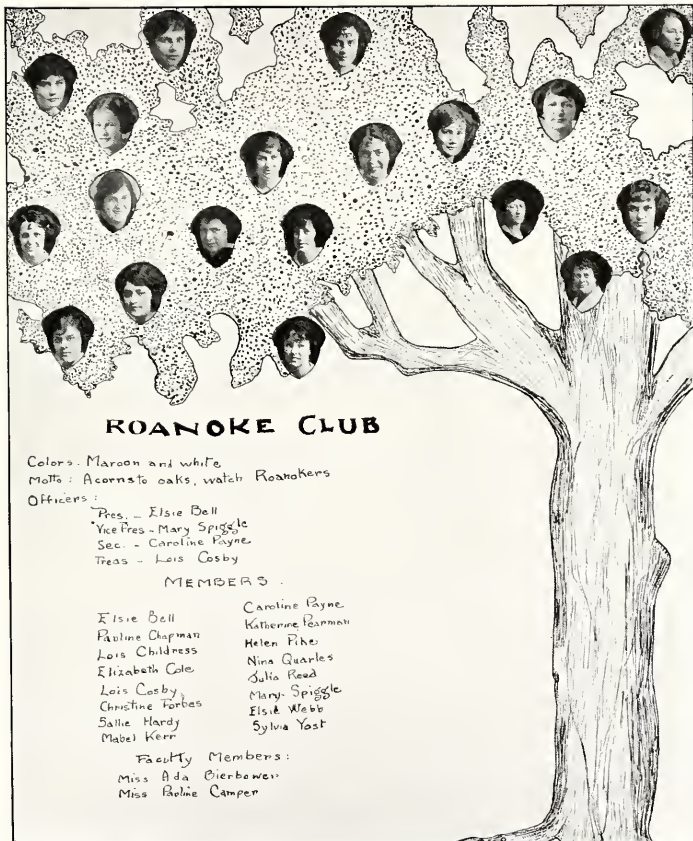 ROANOKE CLUB
Colors. Maroon and white
Motto: Acorns to oaks, watch Roanokers
Officers:
Pres. - Elsie Bell
Vice Pres - Mary Spiggle
Sec. - Caroline Payne
Treas - Lois Cosby
MEMBERS.
Elsie Bell
Pauline Chapman
Lois Childress
Elizabeth Cole
Lois Cosby
Christine Forbes
Sallie Hardy
Mabel Kerr
Caroline Payne
Katherine Pearman
Helen Pike
Nina Quarles
Julia Reed
Mary Spiggle
Elsie Webb
Sylvia Yost
Faculty Members:
Miss Ada Bierbower
Miss Pauline Camper